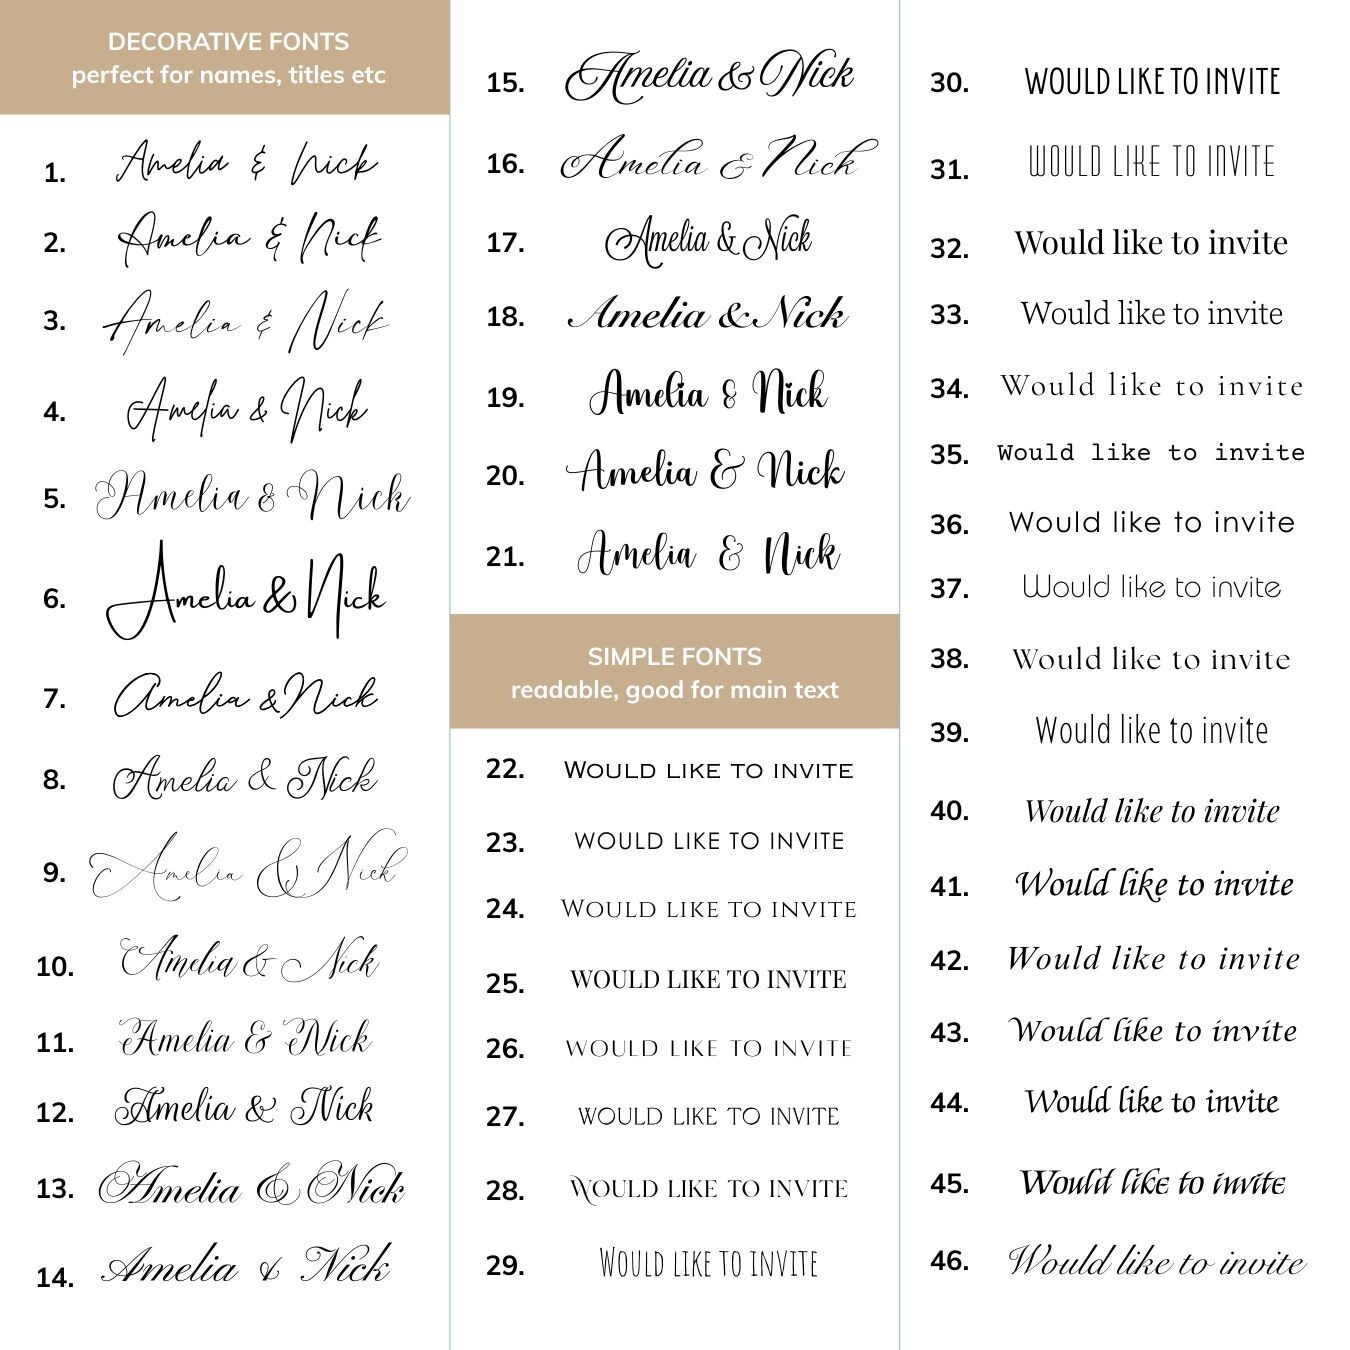 DECORATIVE FONTS
perfect for names, titles etc
1. Amelia & Nick
2. Amelia & Nick
3. Amelia & Nick
4. Amelia & Nick
5. Amelia & Nick
6. Amelia & Nick
7. Amelia & Nick
8. Amelia & Nick
9. Amelia & Nick
10. Amelia & Nick
11. Amelia & Nick
12. Amelia & Nick
13. Amelia & Nick
14. Amelia & Nick
15. Amelia & Nick
16. Amelia & Nick
17. Amelia & Nick
18. Amelia & Nick
19. Amelia & Nick
20. Amelia & Nick
21. Amelia & Nick
SIMPLE FONTS
readable, good for main text
22. WOULD LIKE TO INVITE
23. WOULD LIKE TO INVITE
24. WOULD LIKE TO INVITE
25. WOULD LIKE TO INVITE
26. WOULD LIKE TO INVITE
27. WOULD LIKE TO INVITE
28. WOULD LIKE TO INVITE
29. WOULD LIKE TO INVITE
30. WOULD LIKE TO INVITE
31. WOULD LIKE TO INVITE
32. Would like to invite
33. Would like to invite
34. Would like to invite
35. Would like to invite
36. Would like to invite
37. Would like to invite
38. Would like to invite
39. Would like to invite
40. Would like to invite
41. Would like to invite
42. Would like to invite
43. Would like to invite
44. Would like to invite
45. Would like to invite
46. Would like to invite